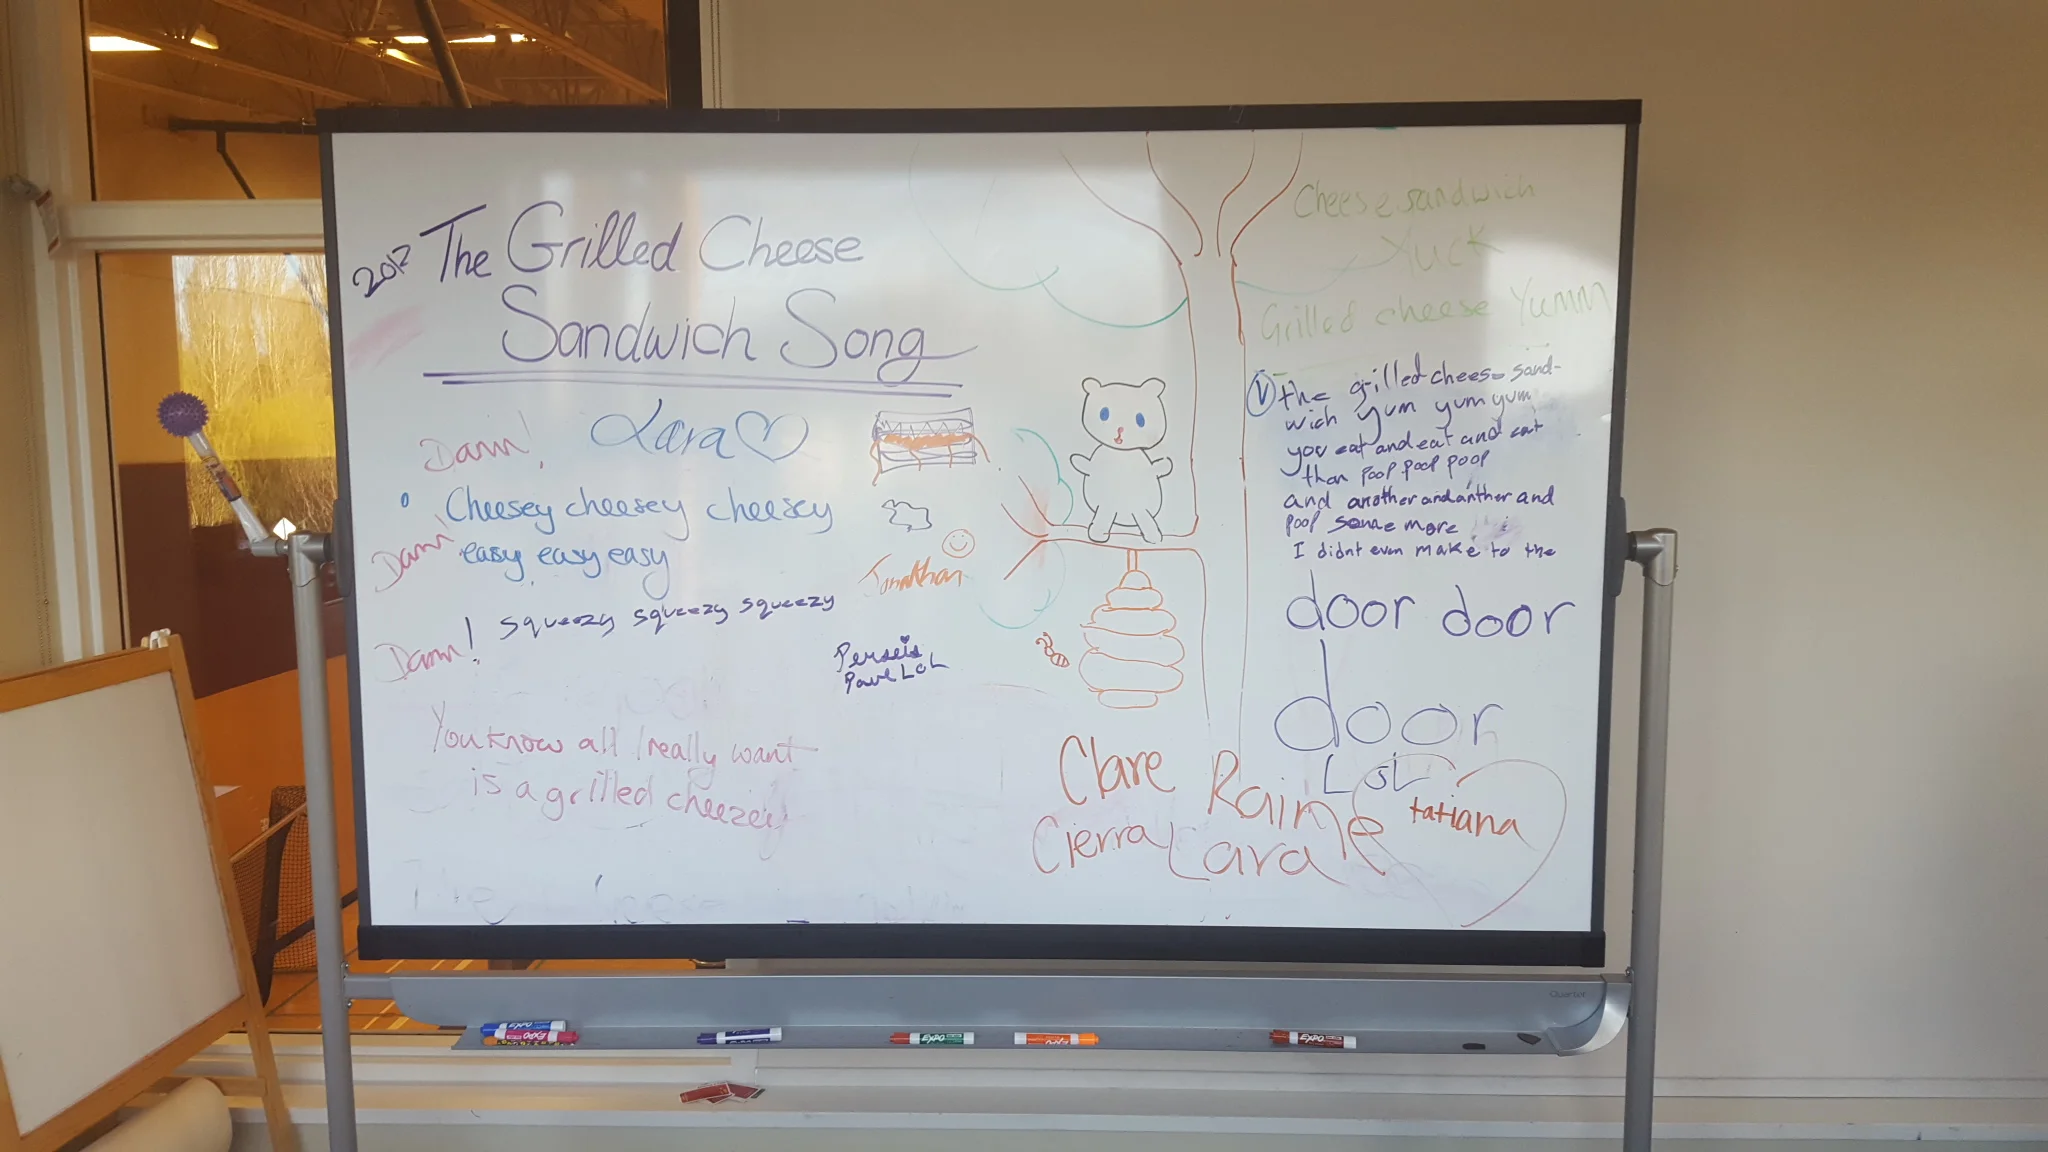 2017 The Grilled Cheese
Sandwich Song
Lara
Damn!
Cheesey cheesey cheesey
Damn!
easy easy easy
Jonathan
squeezy squeezy squeezy
Damn!
Perseis
Pave LOL
You know all I really want
is a grilled cheezey
Cheese sandwich
Yuck
Grilled cheese Yumm
V the grilled cheese sand-
wich yum yum yum
you eat and eat and eat
than poop poop poop
and another and anther and
poop some more
I didnt even make to the
door door
door
LOL
Clare Raine tatiana
Cierra Lara
The
EXPO
EXPO
EXPO
EXPO
EXPO
Quartet